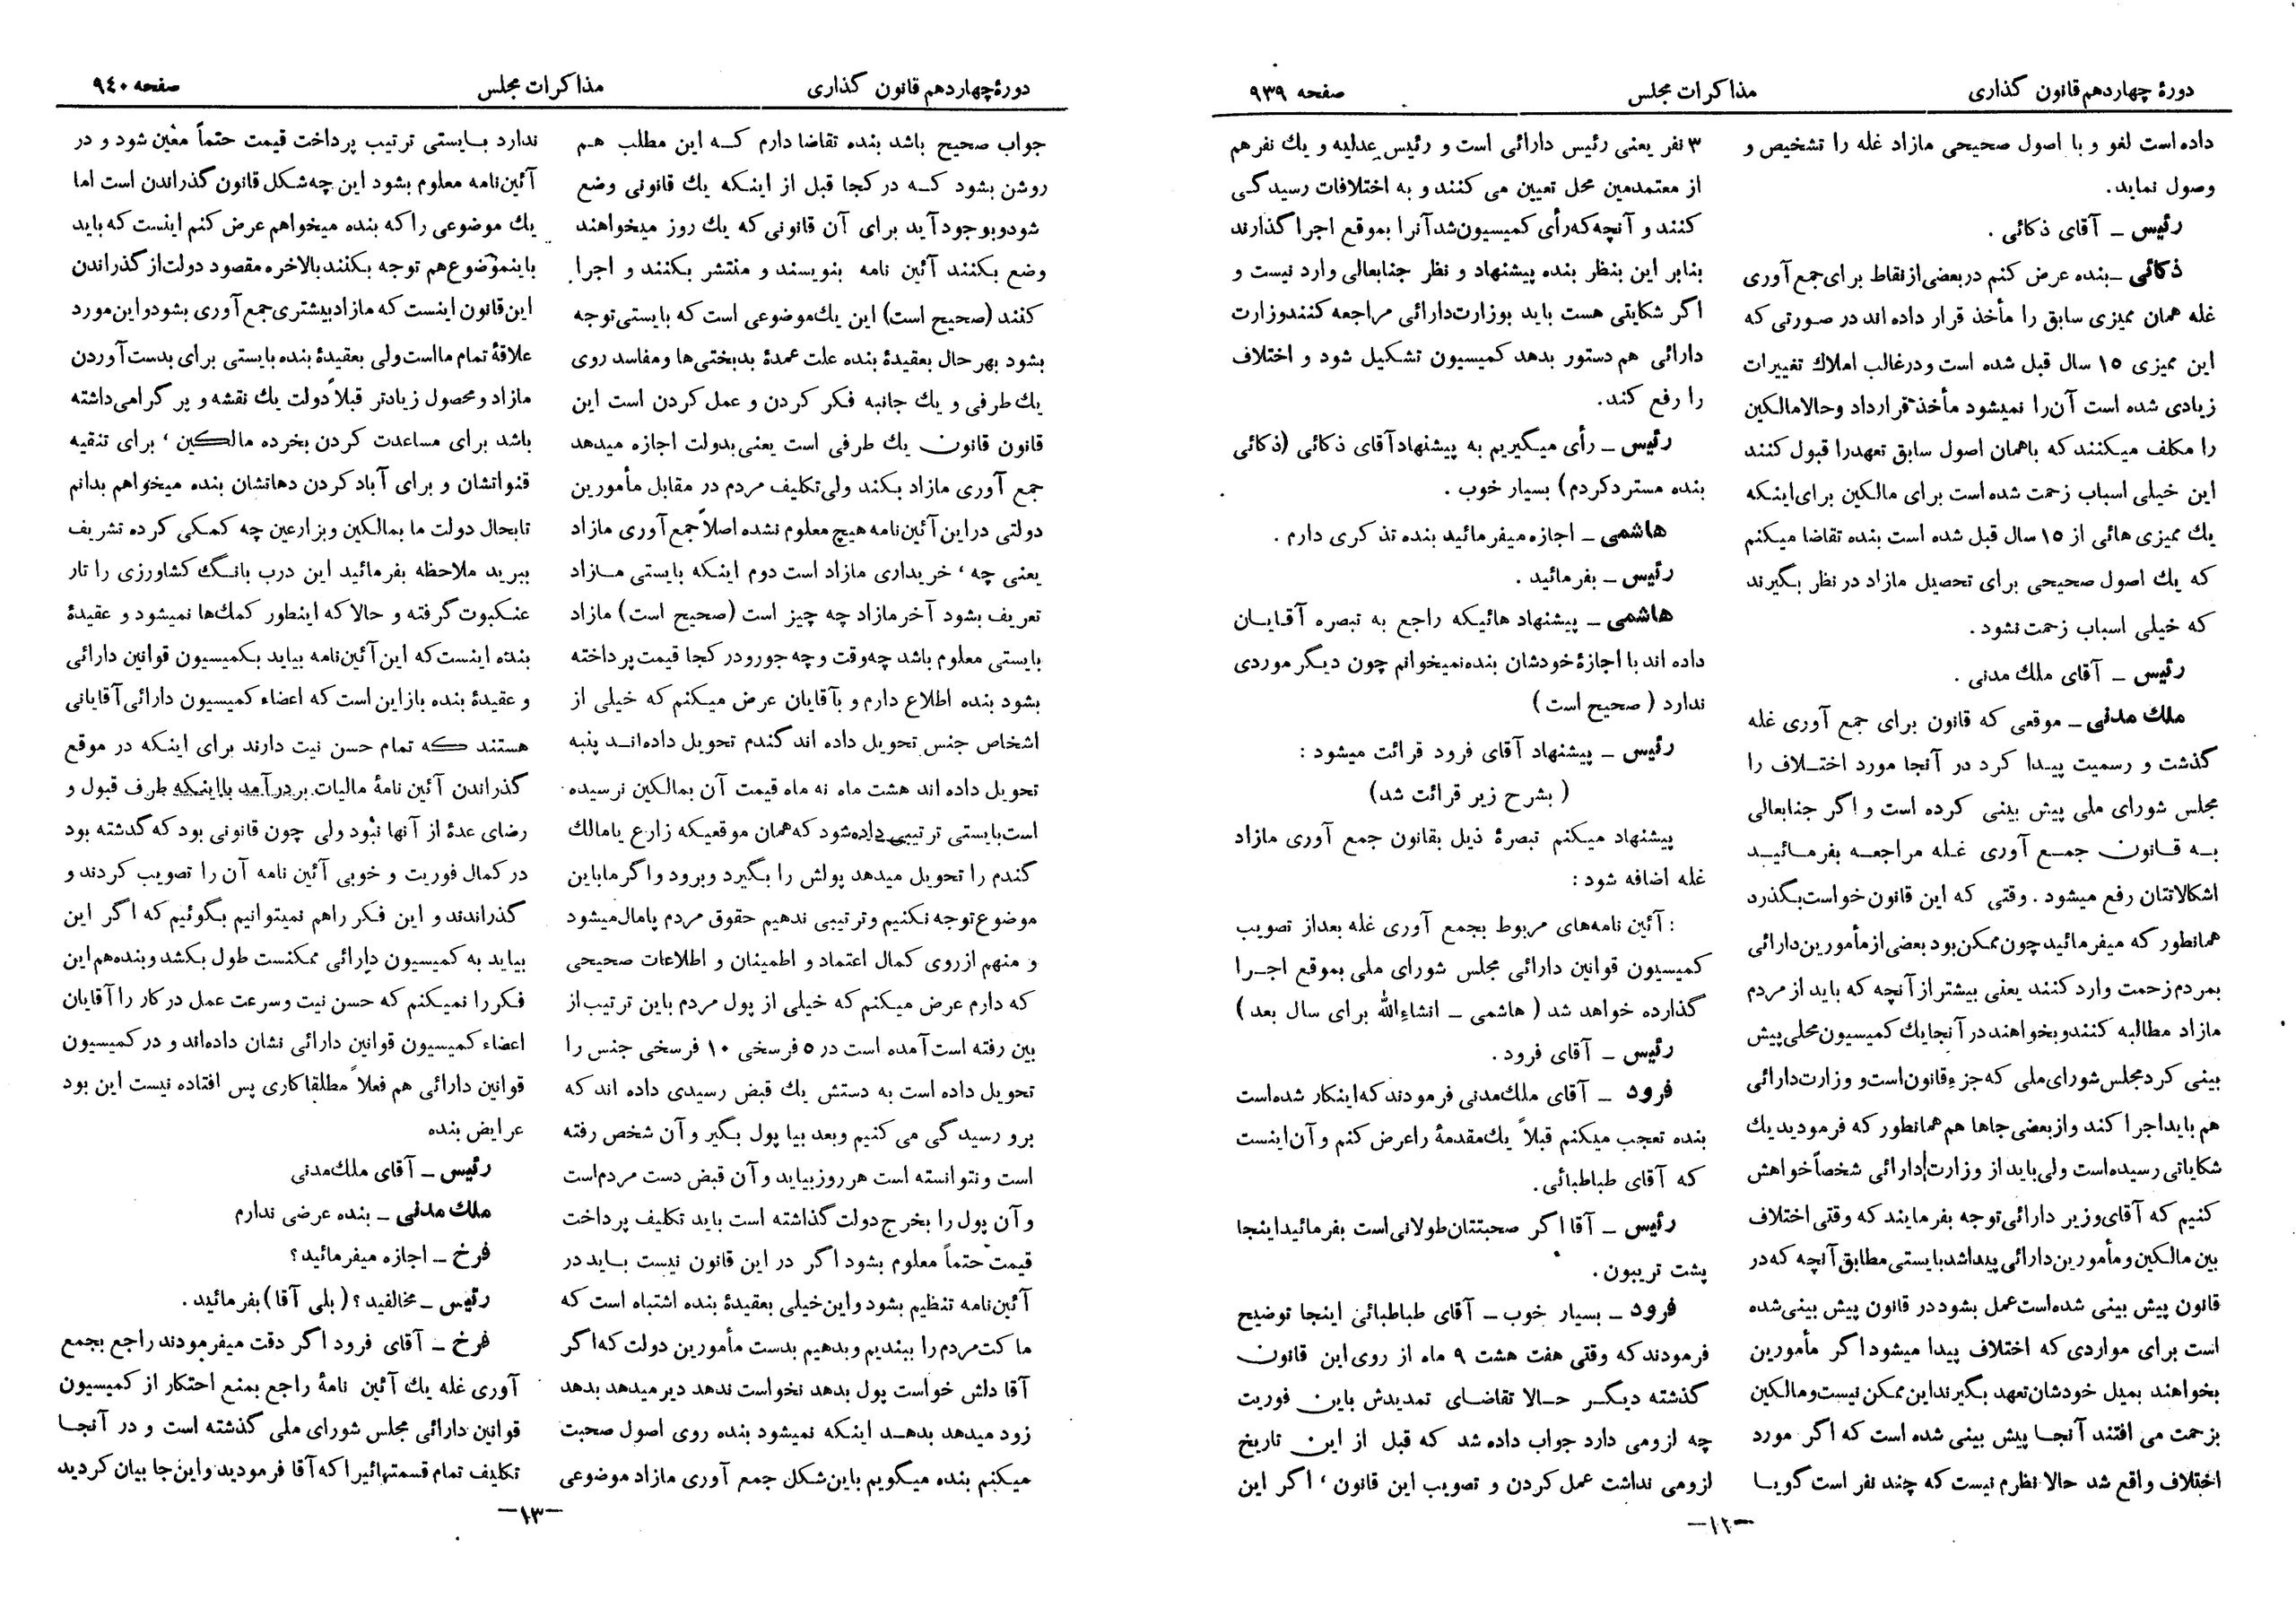 دورهٔ چهاردهم قانون گذاری
مذاکرات مجلس
صفحه ۹۳۹
داده است لغو و با اصول صحیحی مازاد غله را تشخیص و
وصول نماید.
رئیس – آقای ذکائی.
ذکائی – بنده عرض کنم در بعضی از نقاط برای جمع آوری
غله همان ممیزی سابق را مأخذ قرار داده اند در صورتی که
این ممیزی ۱۵ سال قبل شده است و در غالب املاك تغییرات
زیادی شده است آن را نمیشود مأخذ قرارداد و حالا مالکین
را مکلف میکنند که باهمان اصول سابق تعهد را قبول کنند
این خیلی اسباب زحمت شده است برای مالکین برای اینکه
یك ممیزی هائی از ۱۵ سال قبل شده است بنده تقاضا میکنم
که یك اصول صحیحی برای تحصیل مازاد در نظر بگیرند
که خیلی اسباب زحمت نشود.
رئیس – آقای ملك مدنی.
ملك مدنی – موقعی که قانون برای جمع آوری غله
گذشت و رسمیت پیدا کرد در آنجا مورد اختلاف را
مجلس شورای ملی پیش بینی کرده است و اگر جنابعالی
به قانون جمع آوری غله مراجعه بفرمائید
اشکالاتتان رفع میشود. وقتی که این قانون خواست بگذرد
همانطور که میفرمائید چون ممکن بود بعضی از مأمورین دارائی
بمردم زحمت وارد کنند یعنی بیشتر از آنچه که باید از مردم
مازاد مطالبه کنند و بخواهند در آنجا یك کمیسیون محلی پیش
بینی کرد مجلس شورای ملی که جزء قانون است و وزارت دارائی
هم باید اجرا کند و از بعضی جاها هم همانطور که فرمودید یك
شکایاتی رسیده است ولی باید از وزارت دارائی شخصاً خواهش
کنیم که آقای وزیر دارائی توجه بفرمایند که وقتی اختلاف
بین مالکین و مأمورین دارائی پیدا شد بایستی مطابق آنچه که در
قانون پیش بینی شده است عمل بشود در قانون پیش بینی شده
است برای مواردی که اختلاف پیدا میشود اگر مأمورین
بخواهند بمیل خودشان تعهد بگیرند این ممکن نیست و مالکین
بزحمت می افتند آنجا پیش بینی شده است که اگر مورد
اختلاف واقع شد حالا نظرم نیست که چند نفر است گویا
۳ نفر یعنی رئیس دارائی است و رئیس عدلیه و یك نفر هم
از معتمدمین محل تعیین می کنند و به اختلافات رسیدگی
کنند و آنچه که رأی کمیسیون شد آنرا بموقع اجرا گذارند
بنابر این بنظر بنده پیشنهاد و نظر جنابعالی وارد نیست و
اگر شکایتی هست باید بوزارت دارائی مراجعه کنند وزارت
دارائی هم دستور بدهد کمیسیون تشکیل شود و اختلاف
را رفع کند.
رئیس – رأی میگیریم به پیشنهاد آقای ذکائی (ذکائی
بنده مسترد کردم) بسیار خوب.
هاشمی – اجازه میفرمائید بنده تذکری دارم.
رئیس – بفرمائید.
هاشمی – پیشنهاد هائیکه راجع به تبصره آقایان
داده اند با اجازهٔ خودشان بنده نمیخوانم چون دیگر موردی
ندارد (صحیح است)
رئیس – پیشنهاد آقای فرود قرائت میشود:
(بشرح زیر قرائت شد)
پیشنهاد میکنم تبصرهٔ ذیل بقانون جمع آوری مازاد
غله اضافه شود:
: آئین نامه‌های مربوط بجمع آوری غله بعد از تصویب
کمیسیون قوانین دارائی مجلس شورای ملی بموقع اجرا
گذارده خواهد شد (هاشمی – انشاءالله برای سال بعد)
رئیس – آقای فرود.
فرود – آقای ملك مدنی فرمودند که اینکار شده است
بنده تعجب میکنم قبلاً یك مقدمهٔ را عرض کنم و آن اینست
که آقای طباطبائی.
رئیس – آقا اگر صحبتتان طولانی است بفرمائید اینجا
پشت تریبون.
فرود – بسیار خوب – آقای طباطبائی اینجا توضیح
فرمودند که وقتی هفت هشت ۹ ماه از روی این قانون
گذشته دیگر حالا تقاضای تمدیدش باین فوریت
چه لزومی دارد جواب داده شد که قبل از این تاریخ
لزومی نداشت عمل کردن و تصویب این قانون، اگر این
–۱۲–
دورهٔ چهاردهم قانون گذاری
مذاکرات مجلس
صفحه ۹۴۰
جواب صحیح باشد بنده تقاضا دارم که این مطلب هم
روشن بشود که در کجا قبل از اینکه یك قانونی وضع
شود و بوجود آید برای آن قانونی که یك روز میخواهند
وضع بکنند آئین نامه بنویسند و منتشر بکنند و اجرا
کنند (صحیح است) این یك موضوعی است که بایستی توجه
بشود بهر حال بعقیدهٔ بنده علت عمدهٔ بدبختی‌ها و مفاسد روی
یك طرفی و یك جانبه فکر کردن و عمل کردن است این
قانون قانون یك طرفی است یعنی بدولت اجازه میدهد
جمع آوری مازاد بکند ولی تکلیف مردم در مقابل مأمورین
دولتی در این آئین‌نامه هیچ معلوم نشده اصلاً جمع آوری مازاد
یعنی چه، خریداری مازاد است دوم اینکه بایستی مازاد
تعریف بشود آخر مازاد چه چیز است (صحیح است) مازاد
بایستی معلوم باشد چه وقت و چه جور و در کجا قیمت پرداخته
بشود بنده اطلاع دارم و بآقایان عرض میکنم که خیلی از
اشخاص جنس تحویل داده اند گندم تحویل داده‌اند پنبه
تحویل داده اند هشت ماه نه ماه قیمت آن بمالکین نرسیده
است بایستی ترتیبی داده شود که همان موقعیکه زارع یا مالك
گندم را تحویل میدهد پولش را بگیرد و برود و اگر ما باین
موضوع توجه نکنیم و ترتیبی ندهیم حقوق مردم پامال میشود
و منهم از روی کمال اعتماد و اطمینان و اطلاعات صحیحی
که دارم عرض میکنم که خیلی از پول مردم باین ترتیب از
بین رفته است آمده است در ۵ فرسخی ۱۰ فرسخی جنس را
تحویل داده است به دستش یك قبض رسیدی داده اند که
برو رسیدگی می کنیم و بعد بیا پول بگیر و آن شخص رفته
است و نتوانسته است هر روز بیاید و آن قبض دست مردم است
و آن پول را بخرج دولت گذاشته است باید تکلیف پرداخت
قیمت حتماً معلوم بشود اگر در این قانون نیست باید در
آئین‌نامه تنظیم بشود و این خیلی بعقیدهٔ بنده اشتباه است که
ما کت مردم را ببندیم و بدهیم بدست مأمورین دولت که اگر
آقا دلش خواست پول بدهد نخواست ندهد دیر میدهد بدهد
زود میدهد بدهد اینکه نمیشود بنده روی اصول صحبت
میکنم بنده میگویم باین شکل جمع آوری مازاد موضوعی
ندارد بایستی ترتیب پرداخت قیمت حتماً معین شود و در
آئین‌نامه معلوم بشود این چه شکل قانون گذراندن است اما
یك موضوعی را که بنده میخواهم عرض کنم اینست که باید
باینموضوع هم توجه بکنند بالاخره مقصود دولت از گذراندن
این قانون اینست که مازاد بیشتری جمع آوری بشود و این مورد
علاقهٔ تمام ما است ولی بعقیدهٔ بنده بایستی برای بدست آوردن
مازاد و محصول زیادتر قبلاً دولت یك نقشه و پر گرامی داشته
باشد برای مساعدت کردن بخرده مالکین، برای تنقیه
قنواتشان و برای آباد کردن دهاتشان بنده میخواهم بدانم
تابحال دولت ما بمالکین و بزارعین چه کمکی کرده تشریف
ببرید ملاحظه بفرمائید این درب بانگ کشاورزی را تار
عنکبوت گرفته و حالا که اینطور کمك‌ها نمیشود و عقیدهٔ
بنده اینست که این آئین‌نامه بیاید بکمیسیون قوانین دارائی
و عقیدهٔ بنده باز این است که اعضاء کمیسیون دارائی آقایانی
هستند که تمام حسن نیت دارند برای اینکه در موقع
گذراندن آئین نامهٔ مالیات بردرآمد بااینکه طرف قبول و
رضای عدهٔ از آنها نبود ولی چون قانونی بود که گذشته بود
در کمال فوریت و خوبی آئین نامه آن را تصویب کردند و
گذراندند و این فکر راهم نمیتوانیم بگوئیم که اگر این
بیاید به کمیسیون دارائی ممکنست طول بکشد و بنده هم این
فکر را نمیکنم که حسن نیت و سرعت عمل در کار را آقایان
اعضاء کمیسیون قوانین دارائی نشان داده‌اند و در کمیسیون
قوانین دارائی هم فعلاً مطلقا کاری پس افتاده نیست این بود
عرایض بنده
رئیس – آقای ملك مدنی
ملك مدنی – بنده عرضی ندارم
فرخ – اجازه میفرمائید؟
رئیس – مخالفید؟ (بلی آقا) بفرمائید.
فرخ – آقای فرود اگر دقت میفرمودند راجع بجمع
آوری غله یك آئین نامهٔ راجع بمنع احتکار از کمیسیون
قوانین دارائی مجلس شورای ملی گذشته است و در آنجا
تکلیف تمام قسمتهائیرا که آقا فرمودید و این جا بیان کردید
–۱۳–